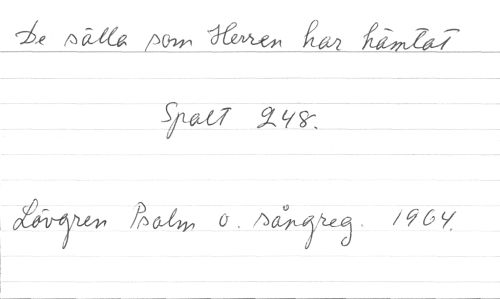 De sälla som Herren har hämtat
Spalt 248.
Lövgren Psalm o. sångreg. 1964.